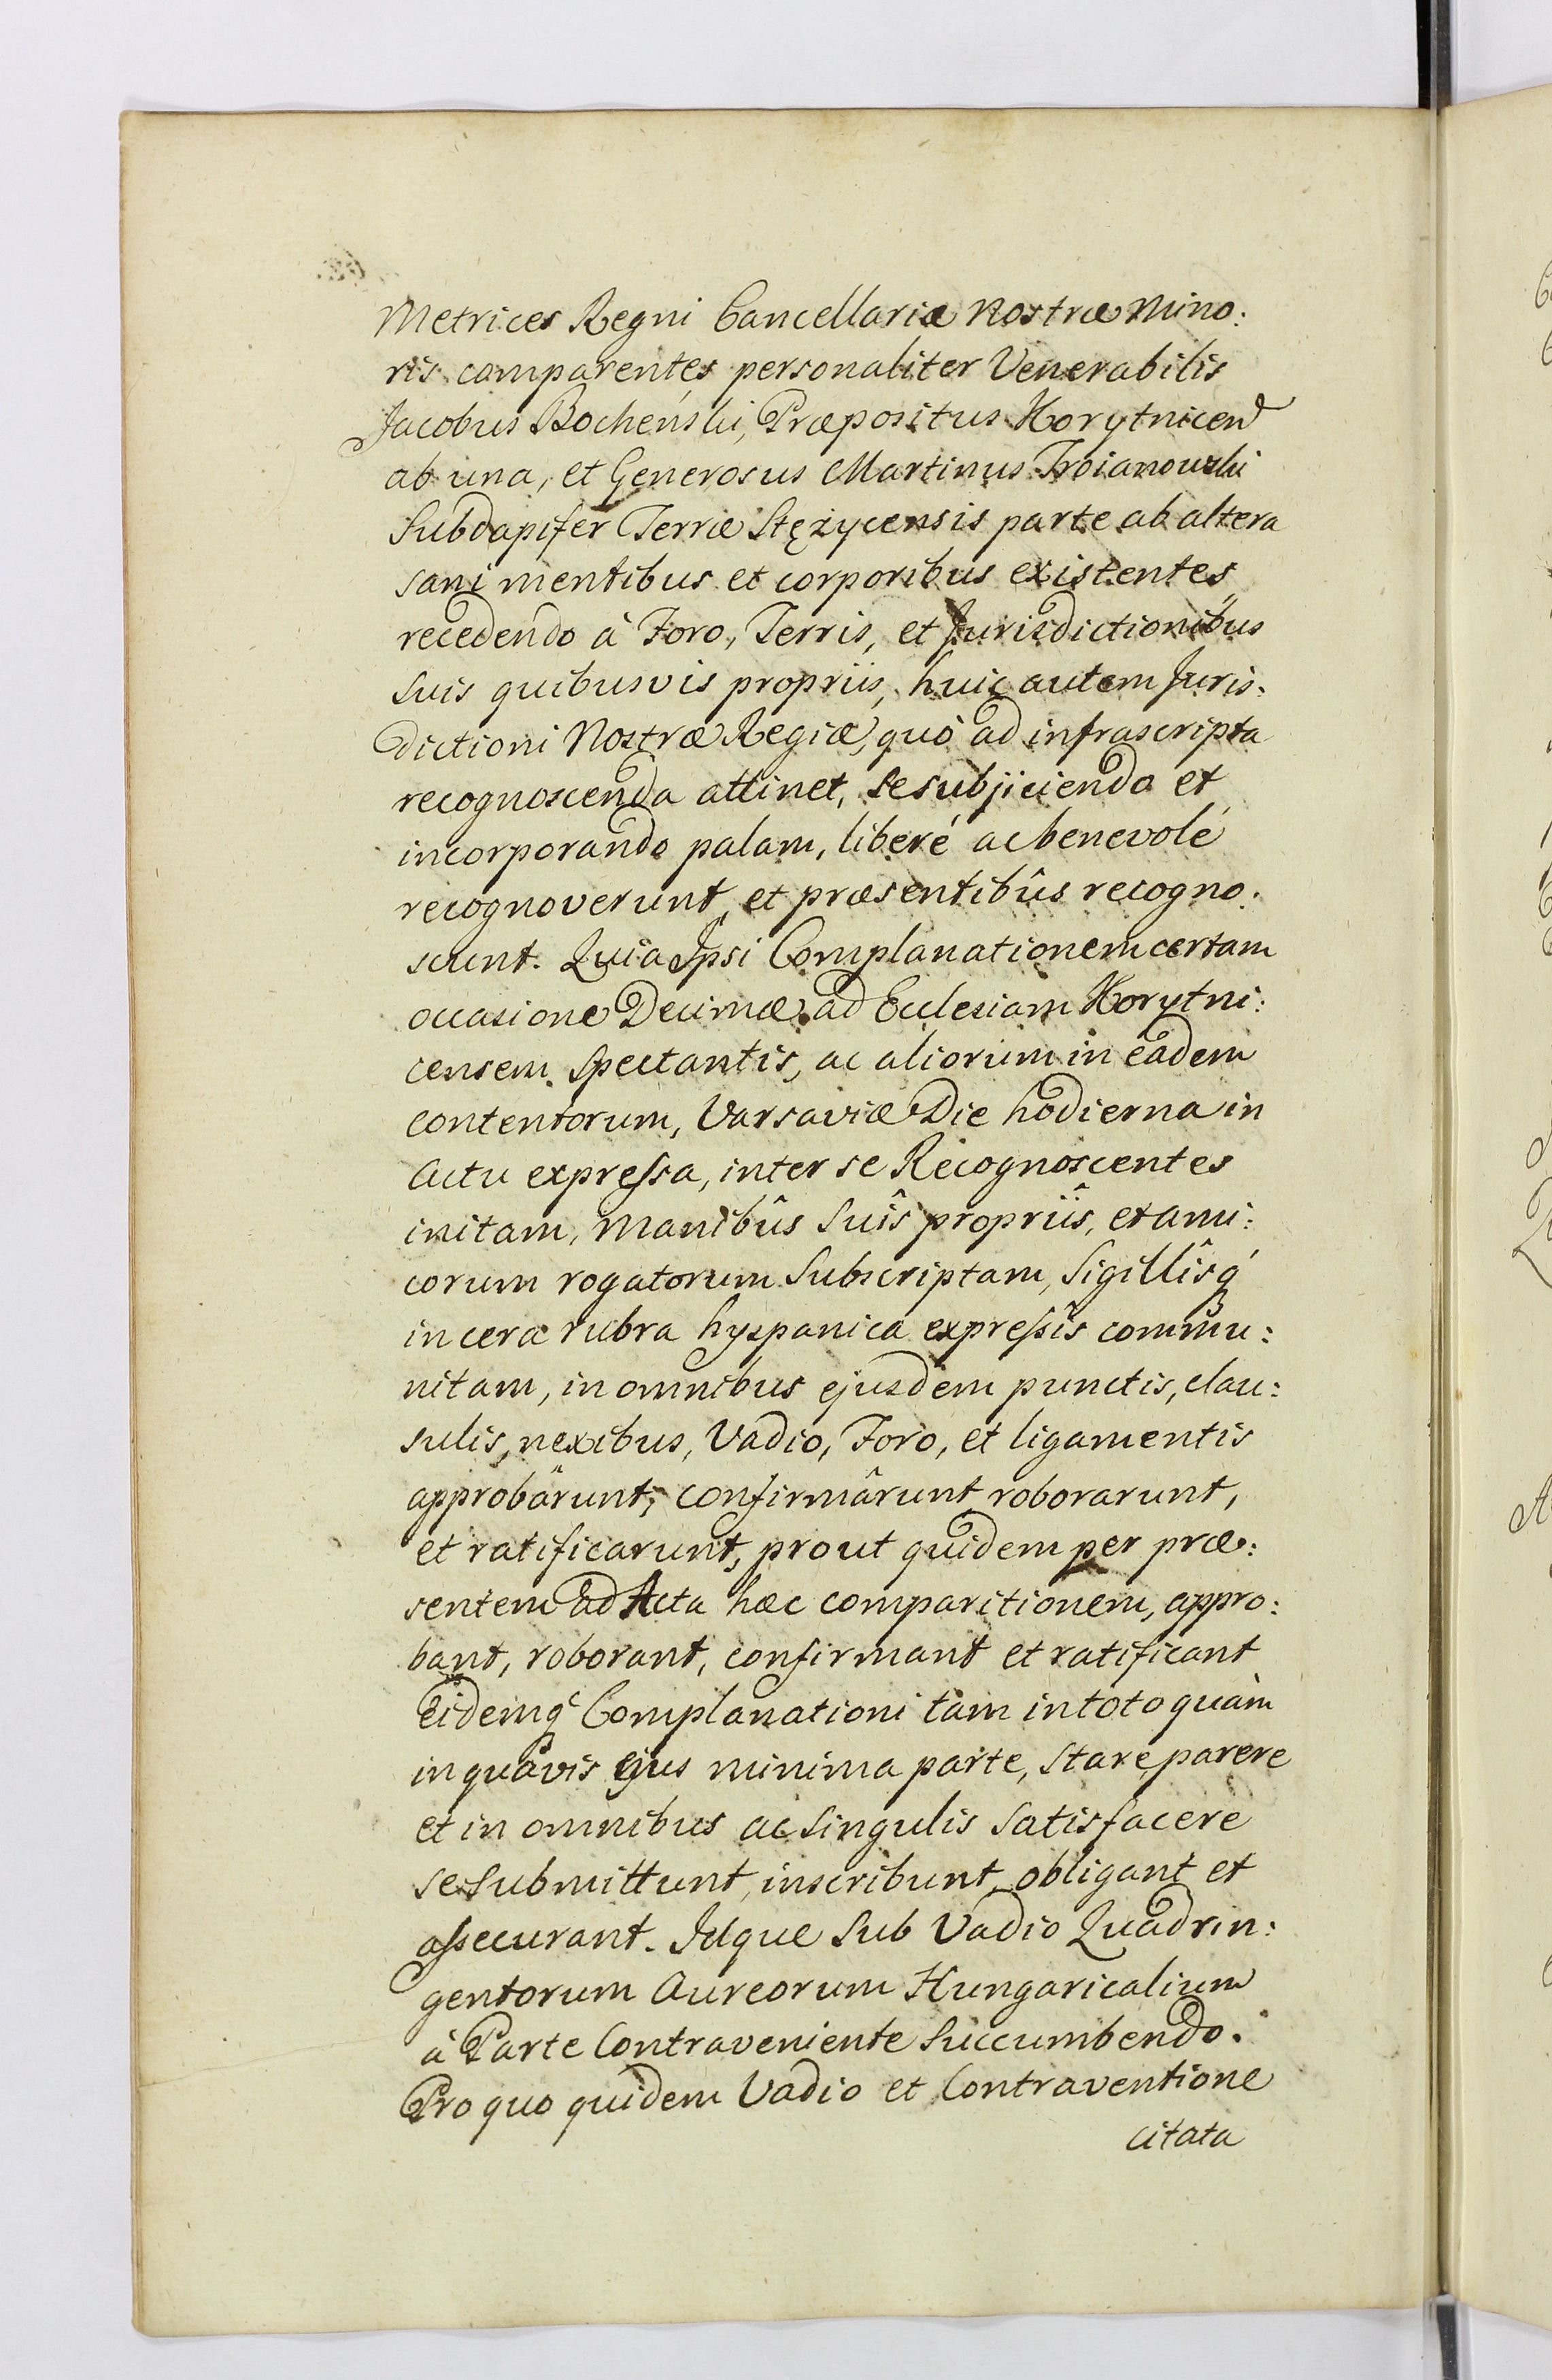 Metrices Regni Cancellariæ Nostræ Mino:
ris comparentes personaliter Venerabilis
Jacobus Bocheński, Præpositus Korytnicen
ab una, et Generosus Martinus Troianowski
Subdapifer Terræ Stężycensis parte ab altera
sani mentibus et corporibus existentes,
recedendo à Foro, Terris, et Jurisdictionibus
suis quibusvis propriis, huic autem Juris:
dictioni Nostræ Regiæ, quò ad infrascripta
recognoscenda attinet, se subjiciendo et
incorporando palam, liberé ac benevolé
recognoverunt, et præsentibûs recogno:
scunt. Quia Ipsi Complanationem certam
occasione Decimæ ad Ecclesiam Korytni:
censem spectantis, ac aliorum in eâdem
contentorum, Varsaviæ Die hodierna in
Actu expreſsa, inter se Recognoscentes
initam, manibûs suîs propriîs, et ami:
corum rogatorum subscriptam, Sigillîsq́
in cera rubra hyspanica expreſsîs commu:
nitam, in omnibus ejusdem punctis, clau:
sulis, nexibus, Vadio, Foro, et ligamentis
approbârunt, confirmârunt roborarunt,
et ratificarunt, prout quidem per præ:
sentem ad Acta hæc comparitionem, appro:
bant, roborant, confirmant et ratificant
Eidemq́ Complanationi tam in toto quàm
in quâvis ejus minima parte, stare, parere
et in omnibus ac singulis satisfacere
se submittunt, inscribunt, obligant et
aſsecurant. Idque sub Vadio Quadrin:
gentorum Aureorum Hungaricalium
à Parte Contraveniente succumbendo.
Pro quo quidem Vadio et Contraventione
citata